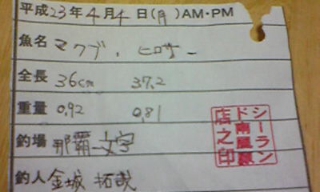 平成23年4月4日(月)AM・PM
魚名 マクブ、ヒロサー
全長 36cm 37.2
重量 0.92 0.81
釣場 那覇一文字
釣人 金城 拓哉
シーラン
ド南風原
店之印